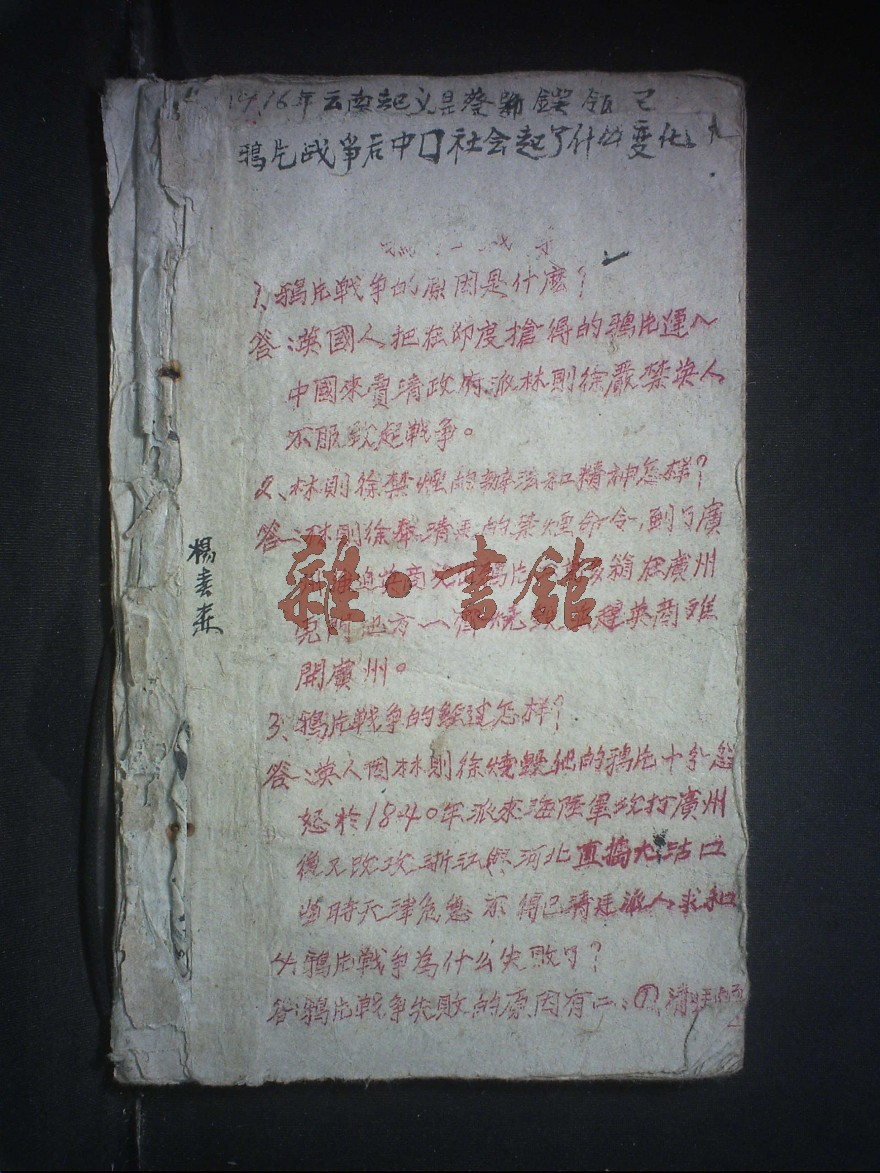 1916年云南起义是蔡鍔領
鴉片战爭后中囗社会起了什么变化
1、鴉片戰争的原因是什麽？
答：英國人把在印度搶得的鴉片運入
中國來賣清政府派林則徐嚴禁英人
不服致起戰争。
2、林則徐禁煙的辦法和精神怎样？
答：林則徐奉清的禁煙命令，到了廣
箱在廣州
地方一齊燒趕英商離
開廣州。
3、鴉片戰争的經过怎样？
答：英人因林則徐燒毀他的鴉片十分忿
怒於1840年派來海陸軍攻打廣州
後又改攻浙江與河北直搗大沽口
當時天津危急不得已清廷派人求和
4、鴉片戰争為什么失敗了？
答：鴉片戰争失敗的原因有二：清
楊春森
雜·書館